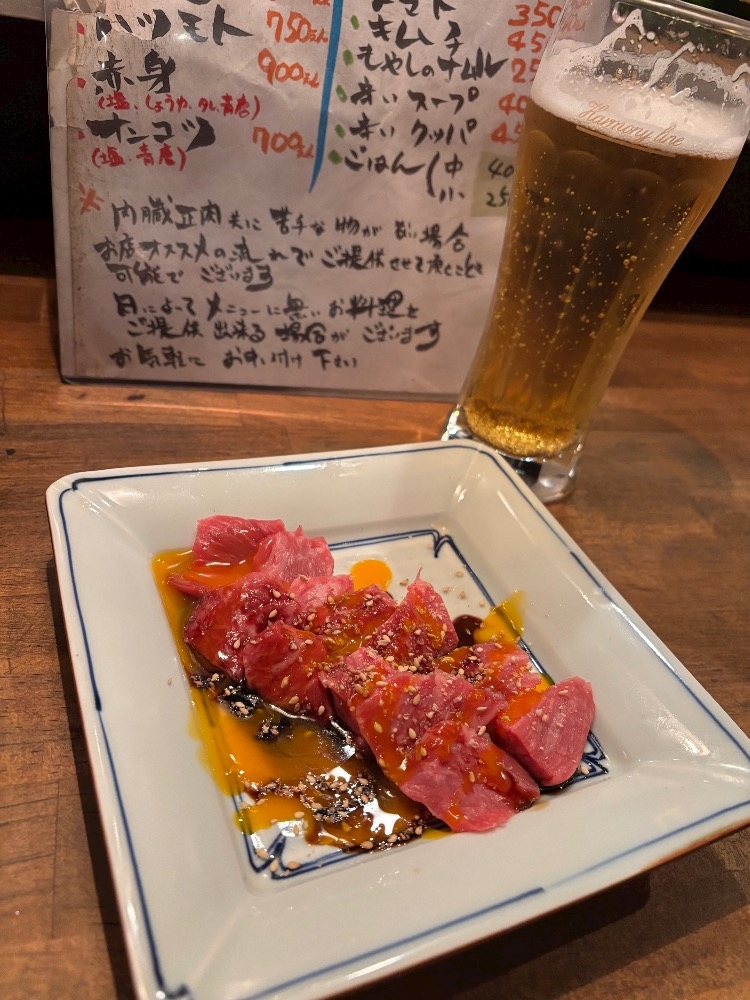 ハツモト 750えん
赤身 900えん
(塩、しょうが、タレ、青唐)
オンコツ 700えん
(塩、青唐)
トマト 350
キムチ 45
もやしのナムル 25
辛いスープ 40
辛いクッパ 45
ごはん(中 40
小 25
※ 内臓正肉共に 苦手な物が無い場合
お店オススメの流れで ご提供させて頂くことも
可能でございます
日によってメニューに無いお料理を
ご提供 出来る 場合が ございます
お気軽に お申し付け下さい
Harmony line